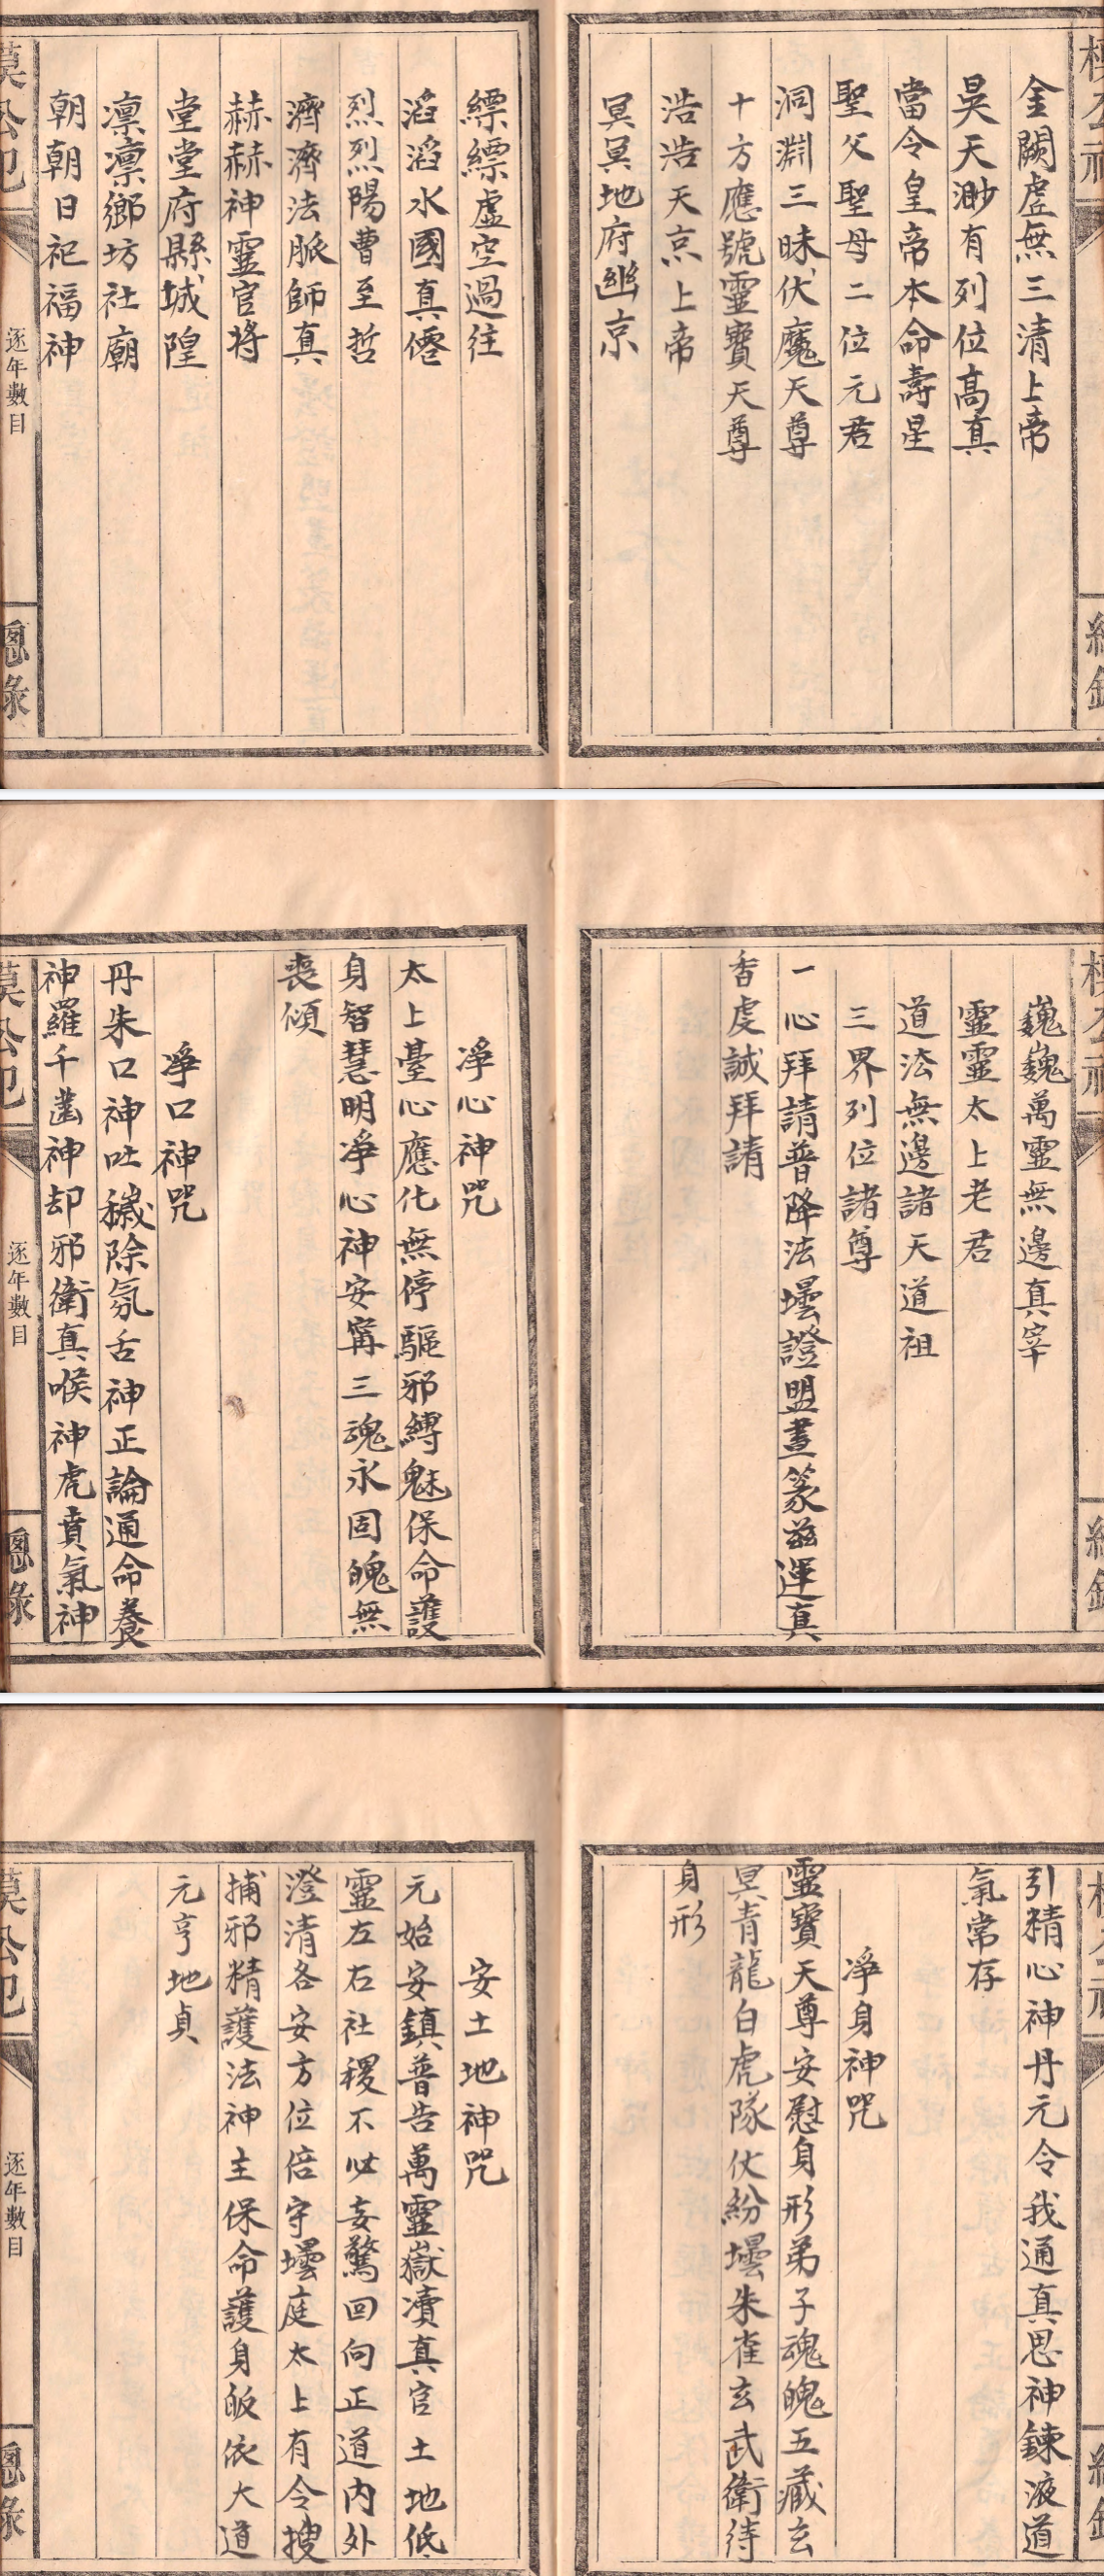 金闕虛無三清上帝
昊天渺有列位高真
當令皇帝本命壽星
聖父聖母二位元君
洞淵三昧伏魔天尊
十方應號靈寶天尊
浩浩天京上帝
冥冥地府幽京
縹縹虛空過往
滔滔水國真僊
烈烈陽曹至哲
濟濟法脈師真
赫赫神靈官將
堂堂府縣城隍
凛凛鄉坊社廟
朝朝日祀福神
逐年數目
總錄
巍巍萬靈無邊真宰
靈靈太上老君
道法無邊諸天道祖
三界列位諸尊
一心拜請普降法壜證盟晝篆兹運真
香虔誠拜請
淨心神咒
太上臺心應化無停驅邪縛魅保命護
身智慧明淨心神安甯三魂永固魄無
喪傾
淨口神咒
丹朱口神吐穢除氛舌神正論通命養
神羅千齒神却邪衛真喉神虎賁氣神
逐年數目
總錄
引精心神丹元令我通真思神鍊液道
氣常存
淨身神咒
靈寶天尊安慰身形弟子魂魄五藏玄
冥青龍白虎隊仗紛壜朱雀玄武衛待
身形
安土地神咒
元始安鎮普告萬靈嶽瀆真官土地低
靈左右社稷不必妄驚回向正道内外
澄清各安方位倍守壜庭太上有令搜
捕邪精護法神主保命護身皈依大道
元亨地貞
逐年數目
總錄